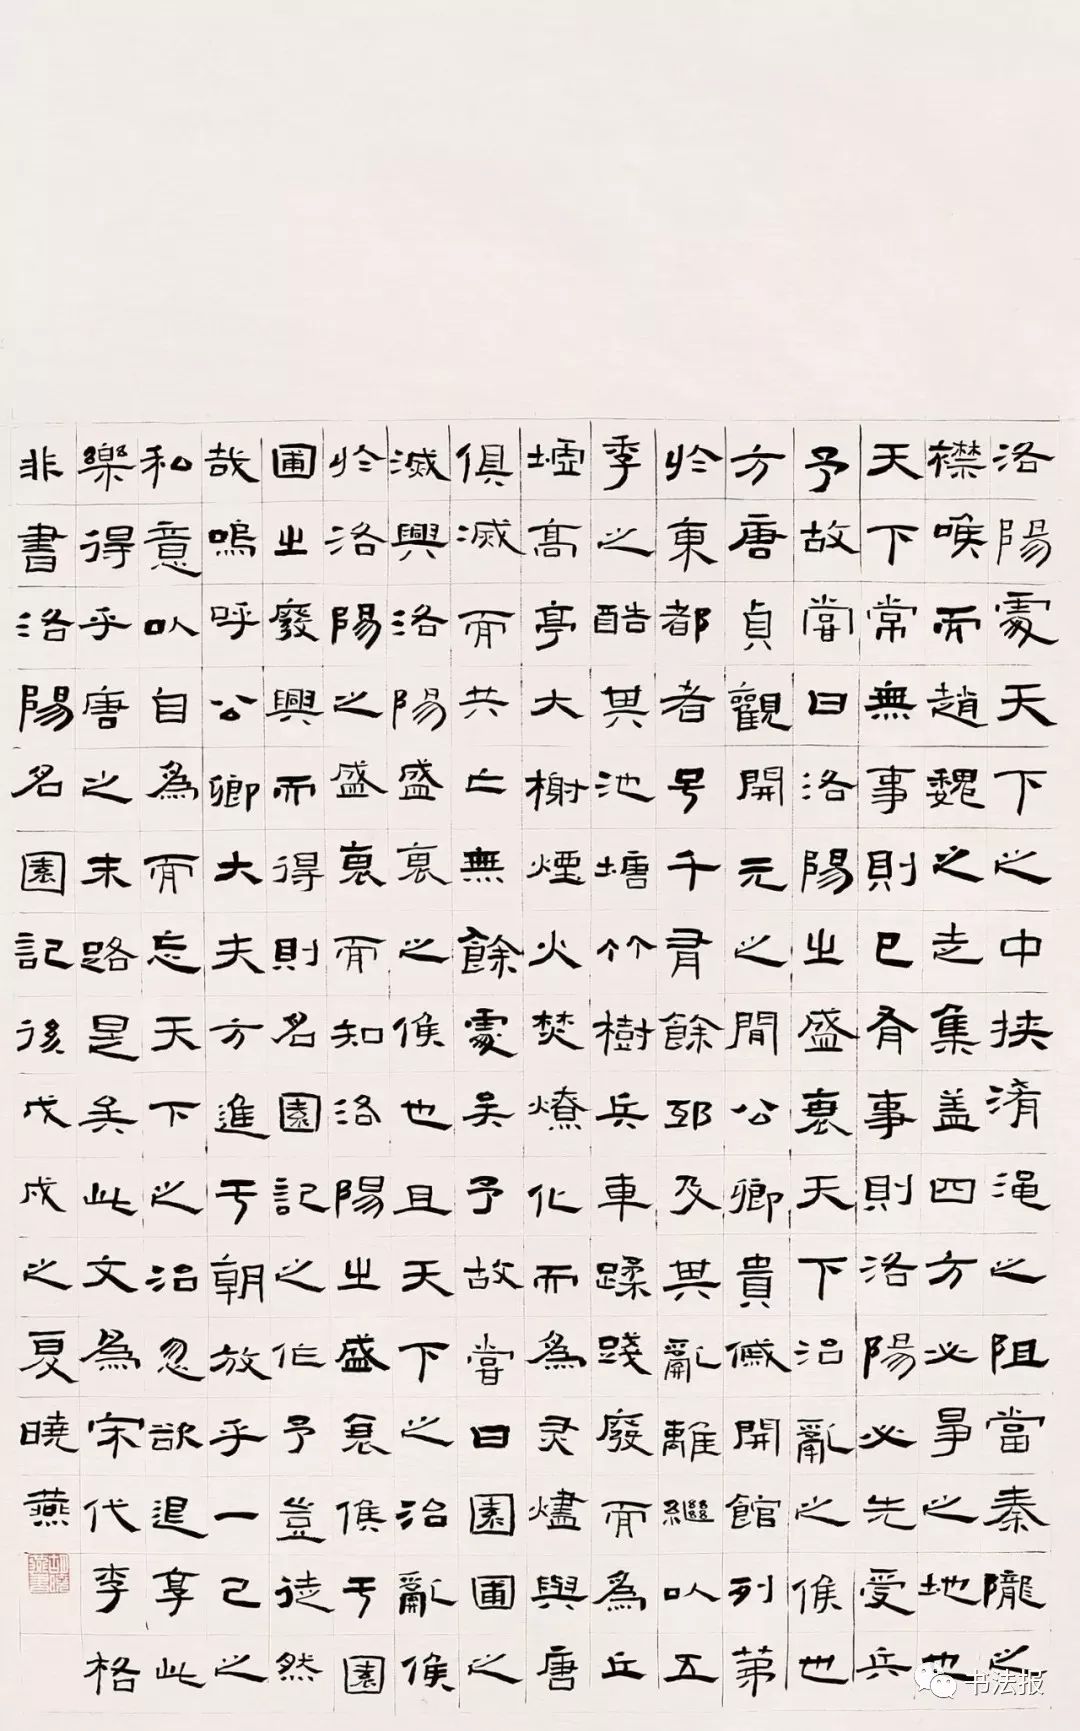 洛陽處天下之中挟淆渑之阻當秦隴之
襟喉而趙魏之走集盖四方必爭之地也
天下常無事則已有事則洛陽必先受兵
予故嘗曰洛陽之盛衰天下治亂之候也
方唐貞觀開元之間公卿貴戚開館列第
於東都者号千有餘邸及其亂離繼以五
季之酷其池塘竹樹兵車蹂踐廢而為丘
墟高亭大榭煙火焚燎化而為灵燼與唐
俱滅而共亡無餘處矣予故嘗曰園圃之
滅興洛陽盛衰之候也且天下之治亂候
於洛陽之盛衰而知洛陽之盛衰候于園
圃之廢興而得則名園記之作予豈徒然
哉嗚呼公卿大夫方進于朝放乎一己之
私意以自為而忘天下之治忽欲退享此
樂得乎唐之末路是矣此文為宋代李格
非書洛陽名園記後戊戌之夏曉燕
书法报